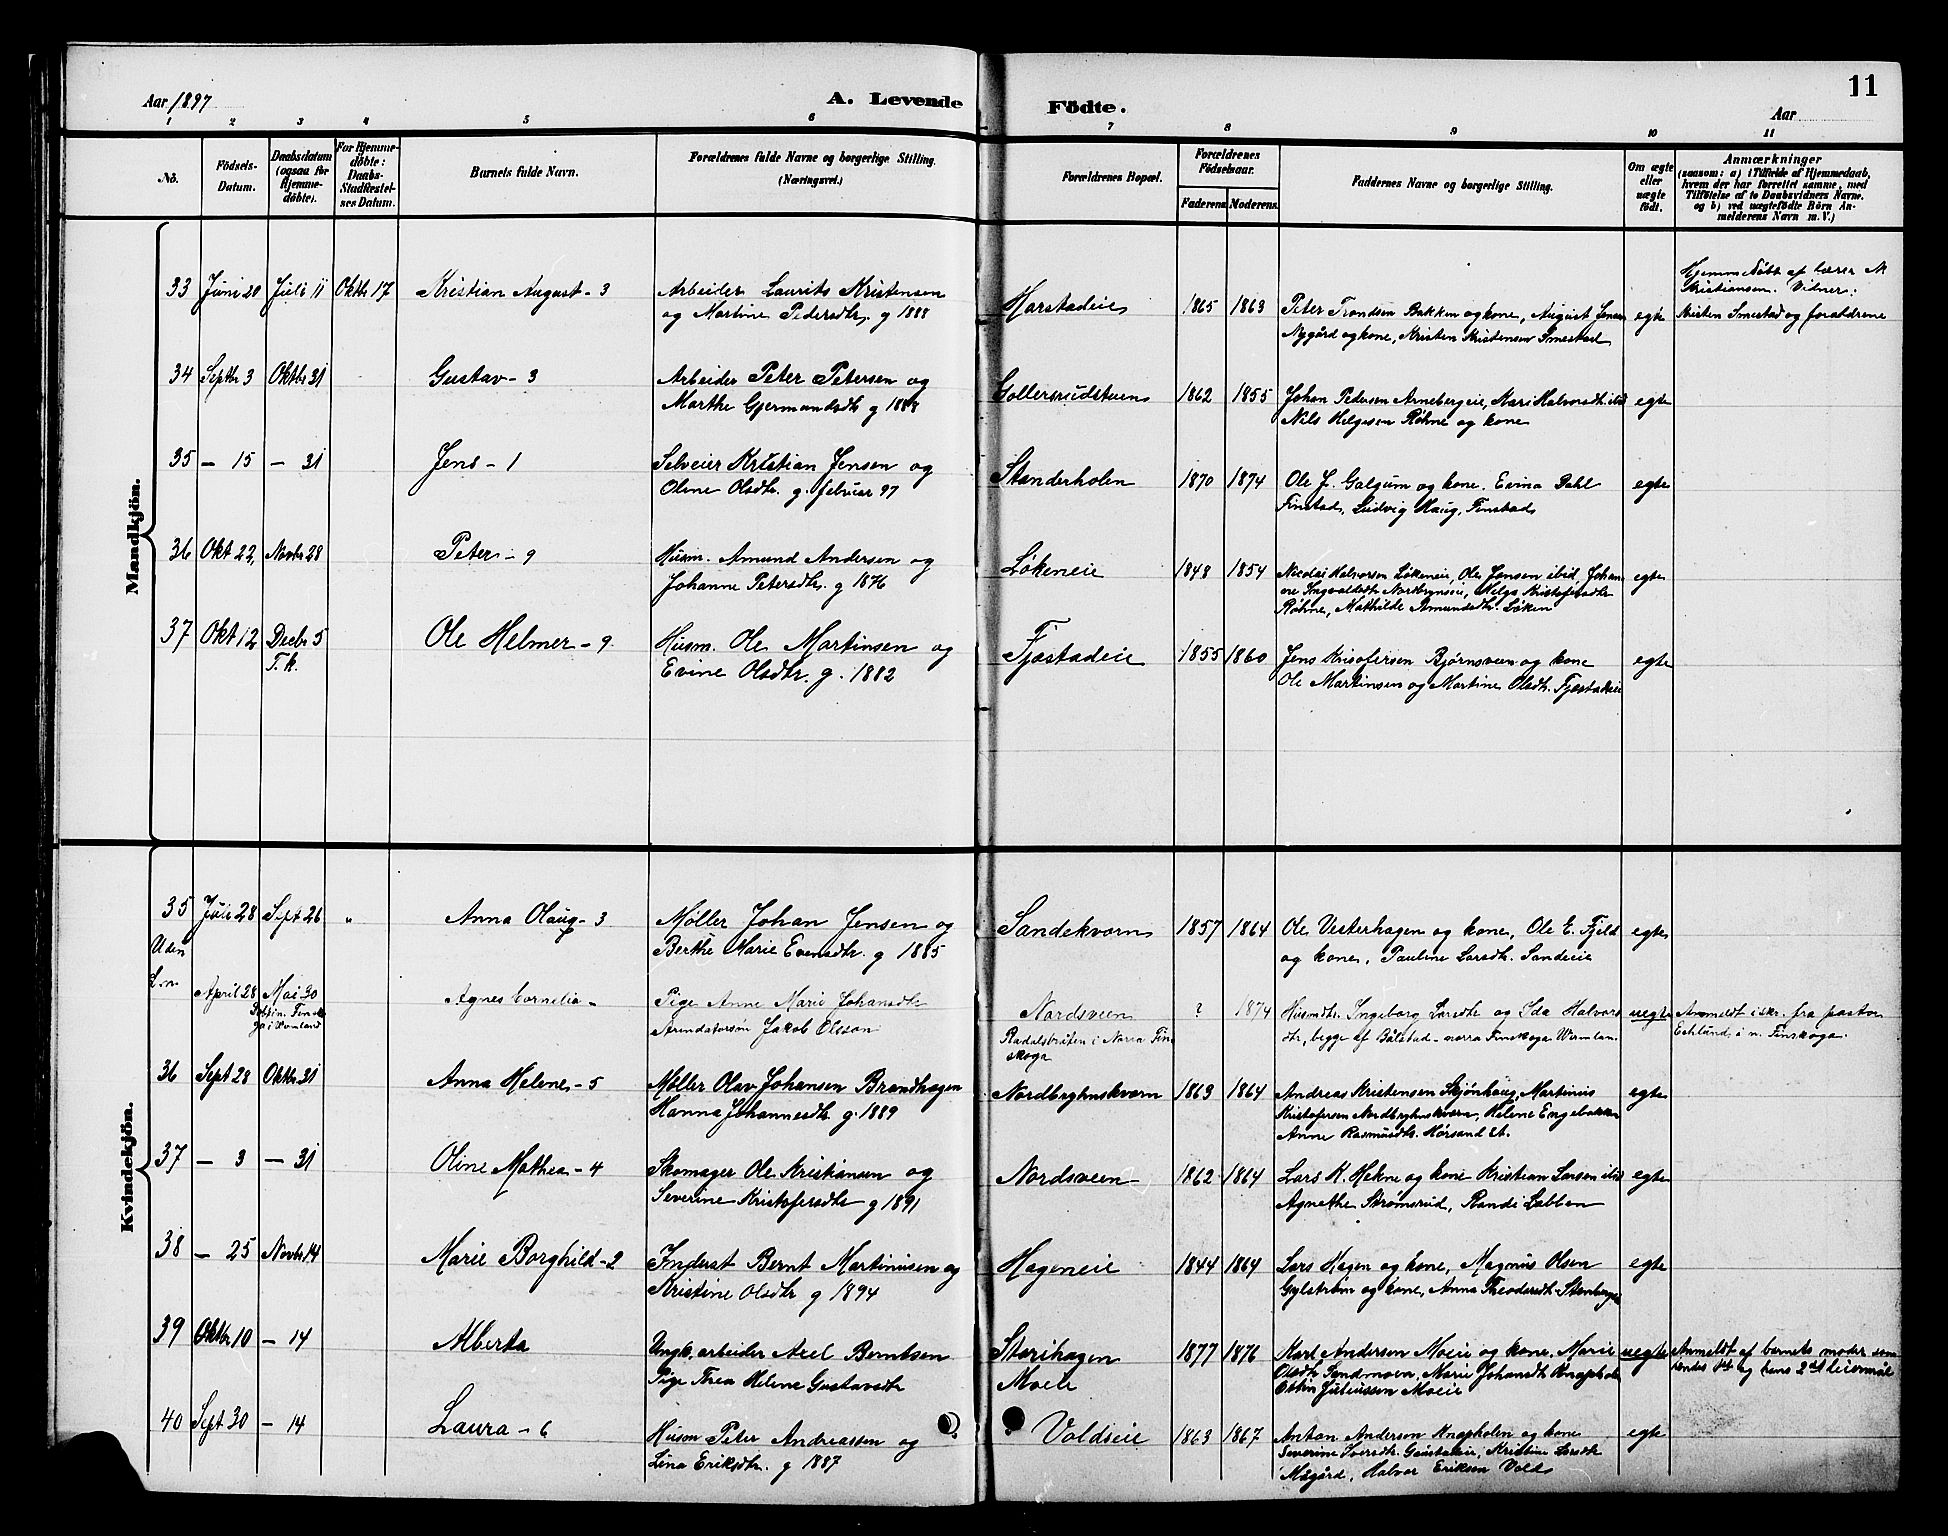 Aar 1897
A. Levende
Födte.
Aar
11
1 2 3 4 5 6 7 8 9 10 11
No.
Födsels-
Datum.
Daabsdatum
(ogsaa for
Hjemme-
döbte).
For Hjemme-
döbte:
Daabs-
Stadfæstel-
ses Datum.
Barnets fulde Navn.
Forældrenes fulde Navne og borgerlige Stilling.
(Næringsvei.)
Forældrenes Bopæl.
Forældrenes
Födselsaar.
Faderens. Moderens.
Faddernes Navne og borgerlige Stilling.
Om ægte
eller
uægte
födt.
Anmærkninger
(saasom: a) i Tilfælde af Hjemmedaab,
hvem der har forrettet samme, med
Tilföielse af to Daabsvidners Navne.
og b) ved uægtefödte Börn An-
melderens Navn m. V.)
Mandkjön.
33 Juni 20 Juli 11 Oktbr 17 Kristian August - 3
Arbeider Laurits Kristensen
og Martine Pedersdtr. g 1888
Harstadeie 1865 1863
Peter Trondsen Bakken og kone, August Jensen
Nygård og kone, Kristen Kristensen Smestad
egte
Hjemmedøbt af lærer N
Kristiansen. Vidner:
Kristen Smestad og forældrene
34 Septbr 3 Oktbr 31 Gustav - 3
Arbeider Peter Petersen og
Marthe Gjermundsdtr g 1888
Gollersrudstuen 1862 1855
Johan Pedersen Arnebergeie, Mari Halvorsdtr. ibid
Nils Helgesen Røhne og kone
egte
35 — 15 — 31 Jens - 1
Selveier Kristian Jensen og
Oline Olsdtr. g. februar 97
Stenderholen 1870 1874
Ole J. Galgum og kone. Evina Dahl
Finstad, Ludvig Haug, Finstad
egte
36 Okt 22, Novbr 28 Peter - 9
Husm. Amund Andersen og
Johanne Petersdtr. g 1876
Løkeneie 1848 1854
Nicolai Halvorsen Løkeneie, Ole Jonsen ibid, Johan
ne Ingvaldsdtr Nordbryneie, Helga Kristofersdtr
Røhne, Mathilde Amundsdtr. Løken
egte
37 Okt 12 Decbr 5
T. k.
Ole Helmer - 9
Husm. Ole Martinsen og
Evine Olsdtr. g. 1882
Fjæstadeie 1855 1860
Jens Kristofersen Bjørnsveen og kone
Ole Martinsen og Martine Olsdtr. Fjæstadeie
egte
Kvindekjön.
35 Juli 28 Sept 26 " Anna Olaug - 3
Møller Johan Jensen og
Berthe Marie Evensdtr. g 1885
Sandekvern 1857 1864
Ole Vesterhagen og kone, Ole E. Fjeld
og kone, Pauline Larsdtr. Sandeeie
egte
Uden
L.n. April 28 Mai 30
Døbt i n. Finsko
ga i Vermland
Agnes Cornelia -
Pige Anne Marie Johansdtr
Arendatorsøn Jakob Olsson
Nordsveen
Radalsbråten i Norra Fin
skoga
? 1874
Husmdtr. Ingeborg Larsdtr og Ida Halvors
dtr, begge af Bålstad - norra Finskoga Wermlan.
uegte
Anmeldt i skr. fra pastor
Ecklund i n. Finskoga.
36 Sept 28 Oktbr 31 Anna Helene - 5
Møller Olav Johansen Brandhagen
Hanna Johannesdtr g. 1889
Nordbryhnskvern 1863 1864
Andreas Kristensen Skjønhaug, Martinius
Kristofersen Nordbryhnskvern, Helene Engebakken
Anne Rasmusdtr. Hørsand et.
egte
37 — 3 — 31 Oline Mathea - 4
Skomager Ole Kristiansen og
Severine Kristofersdtr g 1891
Nordsveen 1862 1864
Lars K. Hekne og kone Kristian Larsen ibid
Agnethe Strømsrud, Randi Labben
egte
38 — 25 Novbr 14 Marie Borghild - 2
Inderst Bernt Martinusen og
Kristine Olsdtr g 1894
Hageneie 1844 1864
Lars Hagen og kone, Magnus Olsen
Gylstrøm og kone, Anna Theodorsdtr. Stenberg
egte
39 Oktbr 10 — 14 Alberta
Ungk. arbeider Axel Berntsen
Pige Thea Helene Gustavsdtr
Storihagen
Moeie
1877 1876
Karl Andersen Moeie og kone, Marie
Olsdtr Sandmoen, Marie Johansdtr Knapholen
Edvin Juliussen Moeie
uegte
Anmeldt af barnets moder som
hendes 1st og hans 2det leiermål
40 Sept 30 — 14 Laura - 6
Husm Peter Andreassen og
Lina Eriksdtr. g 1887
Voldseie 1863 1867
Anton Andersen Knapholen og kone
Severine Iversdtr. Gaustaeie, Kristine Larsdtr
Mogård, Halvor Eriksen Volds
egte